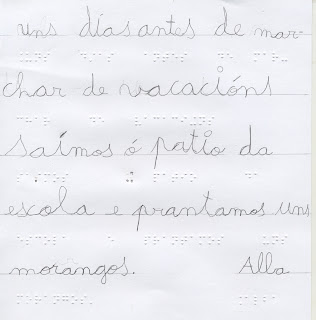 uns días antes de mar-
char de vacacións
saímos ó patio da
escola e prantamos uns
morangos. Alba